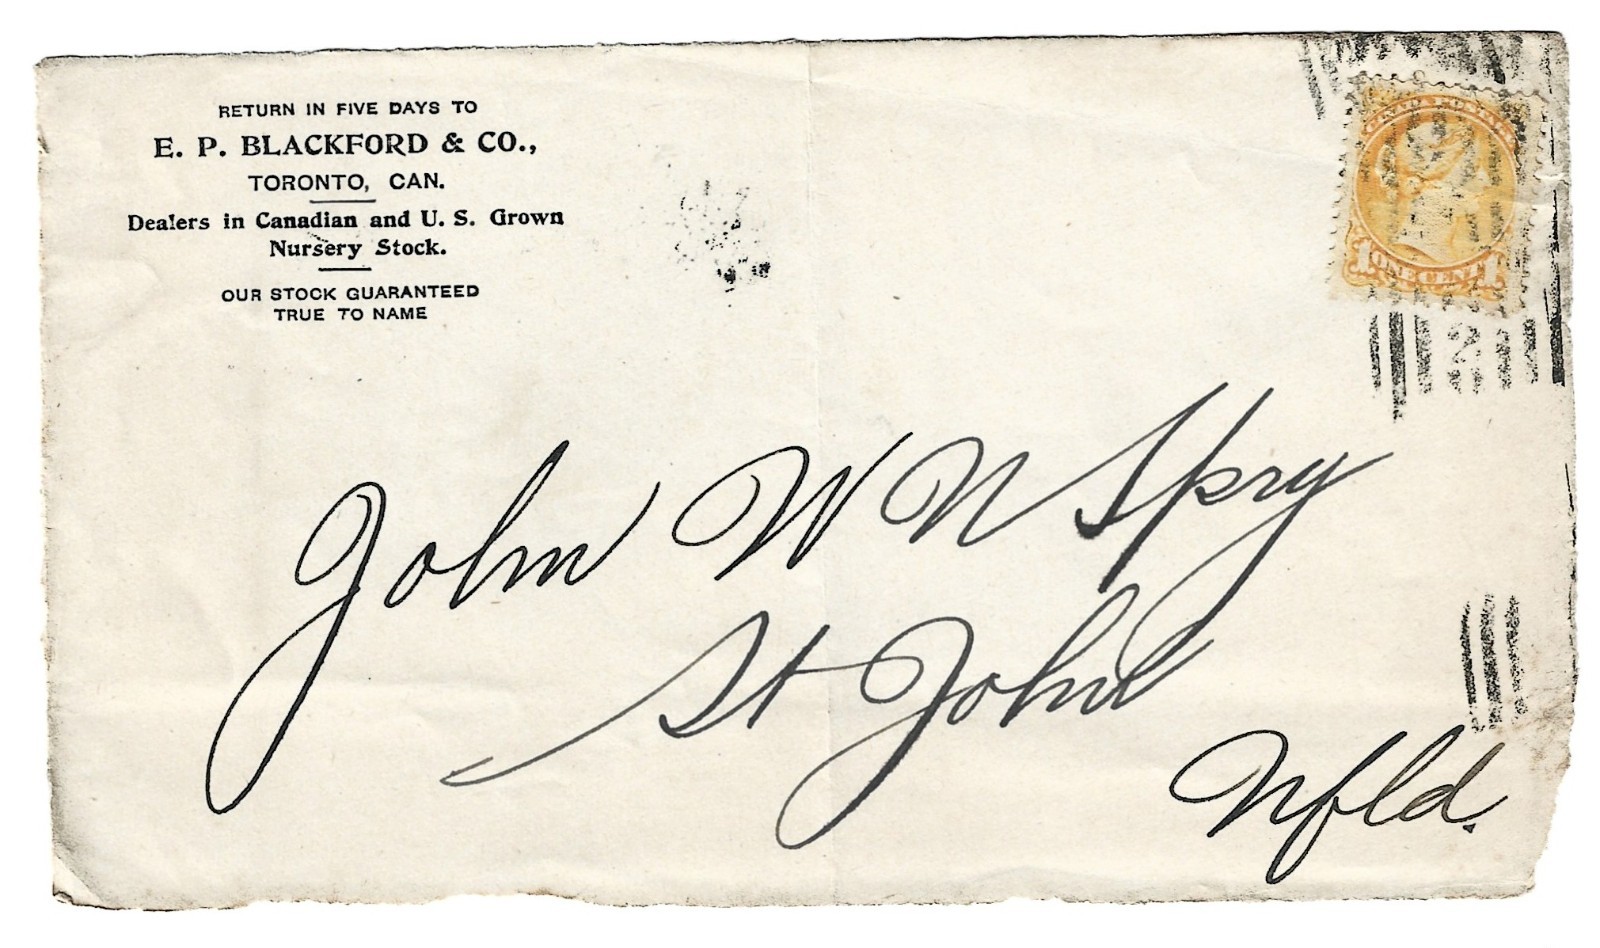 RETURN IN FIVE DAYS TO
E. P. BLACKFORD & CO.,
TORONTO, CAN.
Dealers in Canadian and U. S. Grown
Nursery Stock.
OUR STOCK GUARANTEED
TRUE TO NAME
1 ONE CENT 1
2
John W N Spry
St Johns
Nfld.